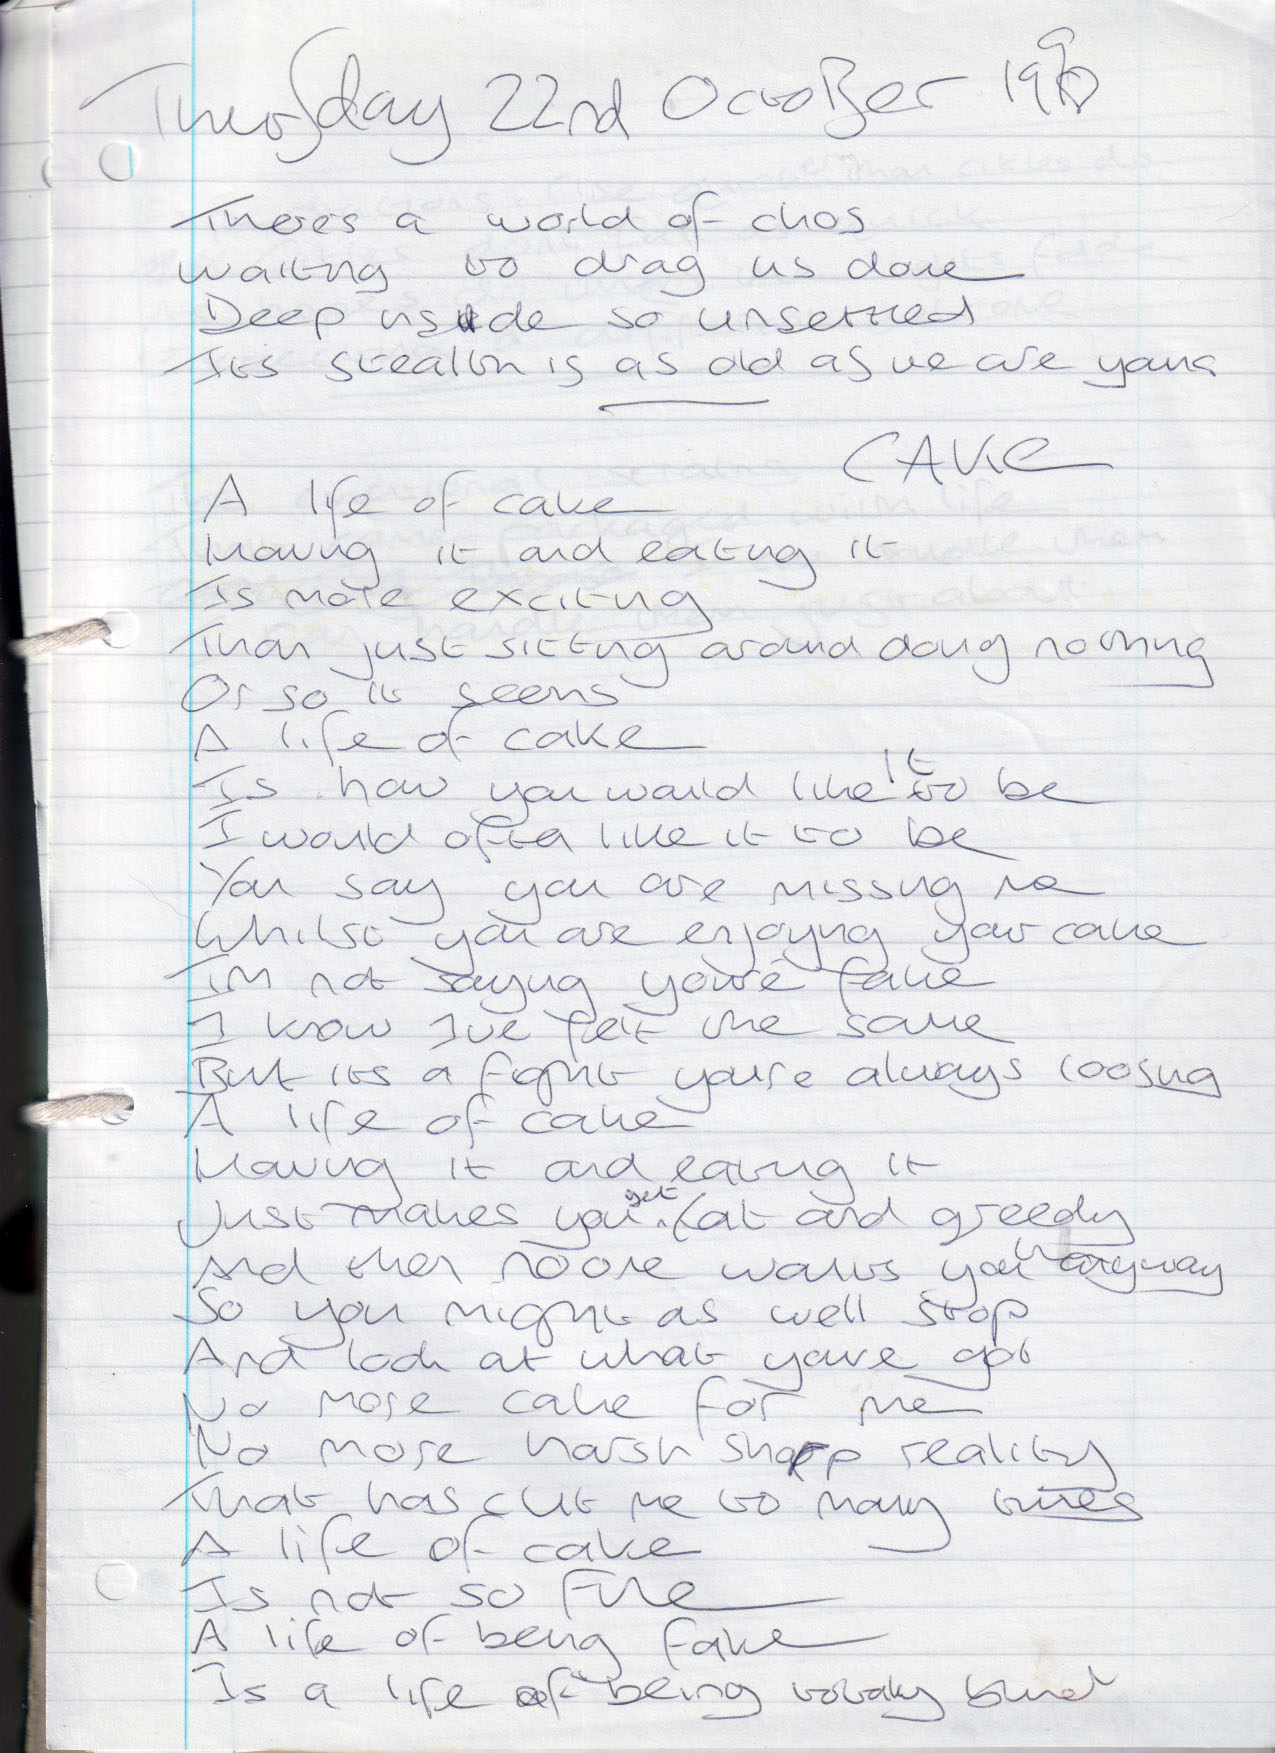 Thursday 22nd October 1990
Theres a world of chos
waiting to drag us done
Deep inside so unsettled
Its stealth is as old as we are young
CAKE
A life of cake
Having it and eating it
Is more exciting
Than just sitting around doing nothing
Or so it seems
A life of cake
Is how you would like it to be
I would often like it to be
You say you are missing me
Whilst you are enjoying your cake
I'm not saying you're fake
I know I've felt the same
But its a fight you're always loosing
A life of cake
Having it and eating it
Just makes you get fat and greedy
And then noone wants you anyway
So you might as well stop
And look at what youve got
No more cake for me
No more harsh sharp reality
That has cut me to many times
A life of cake
Is not so fine
A life of being fake
Is a life of being totaly blind